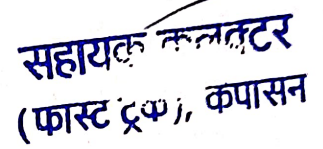 सहायक कलक्टर
(फास्ट ट्रक), कपासन